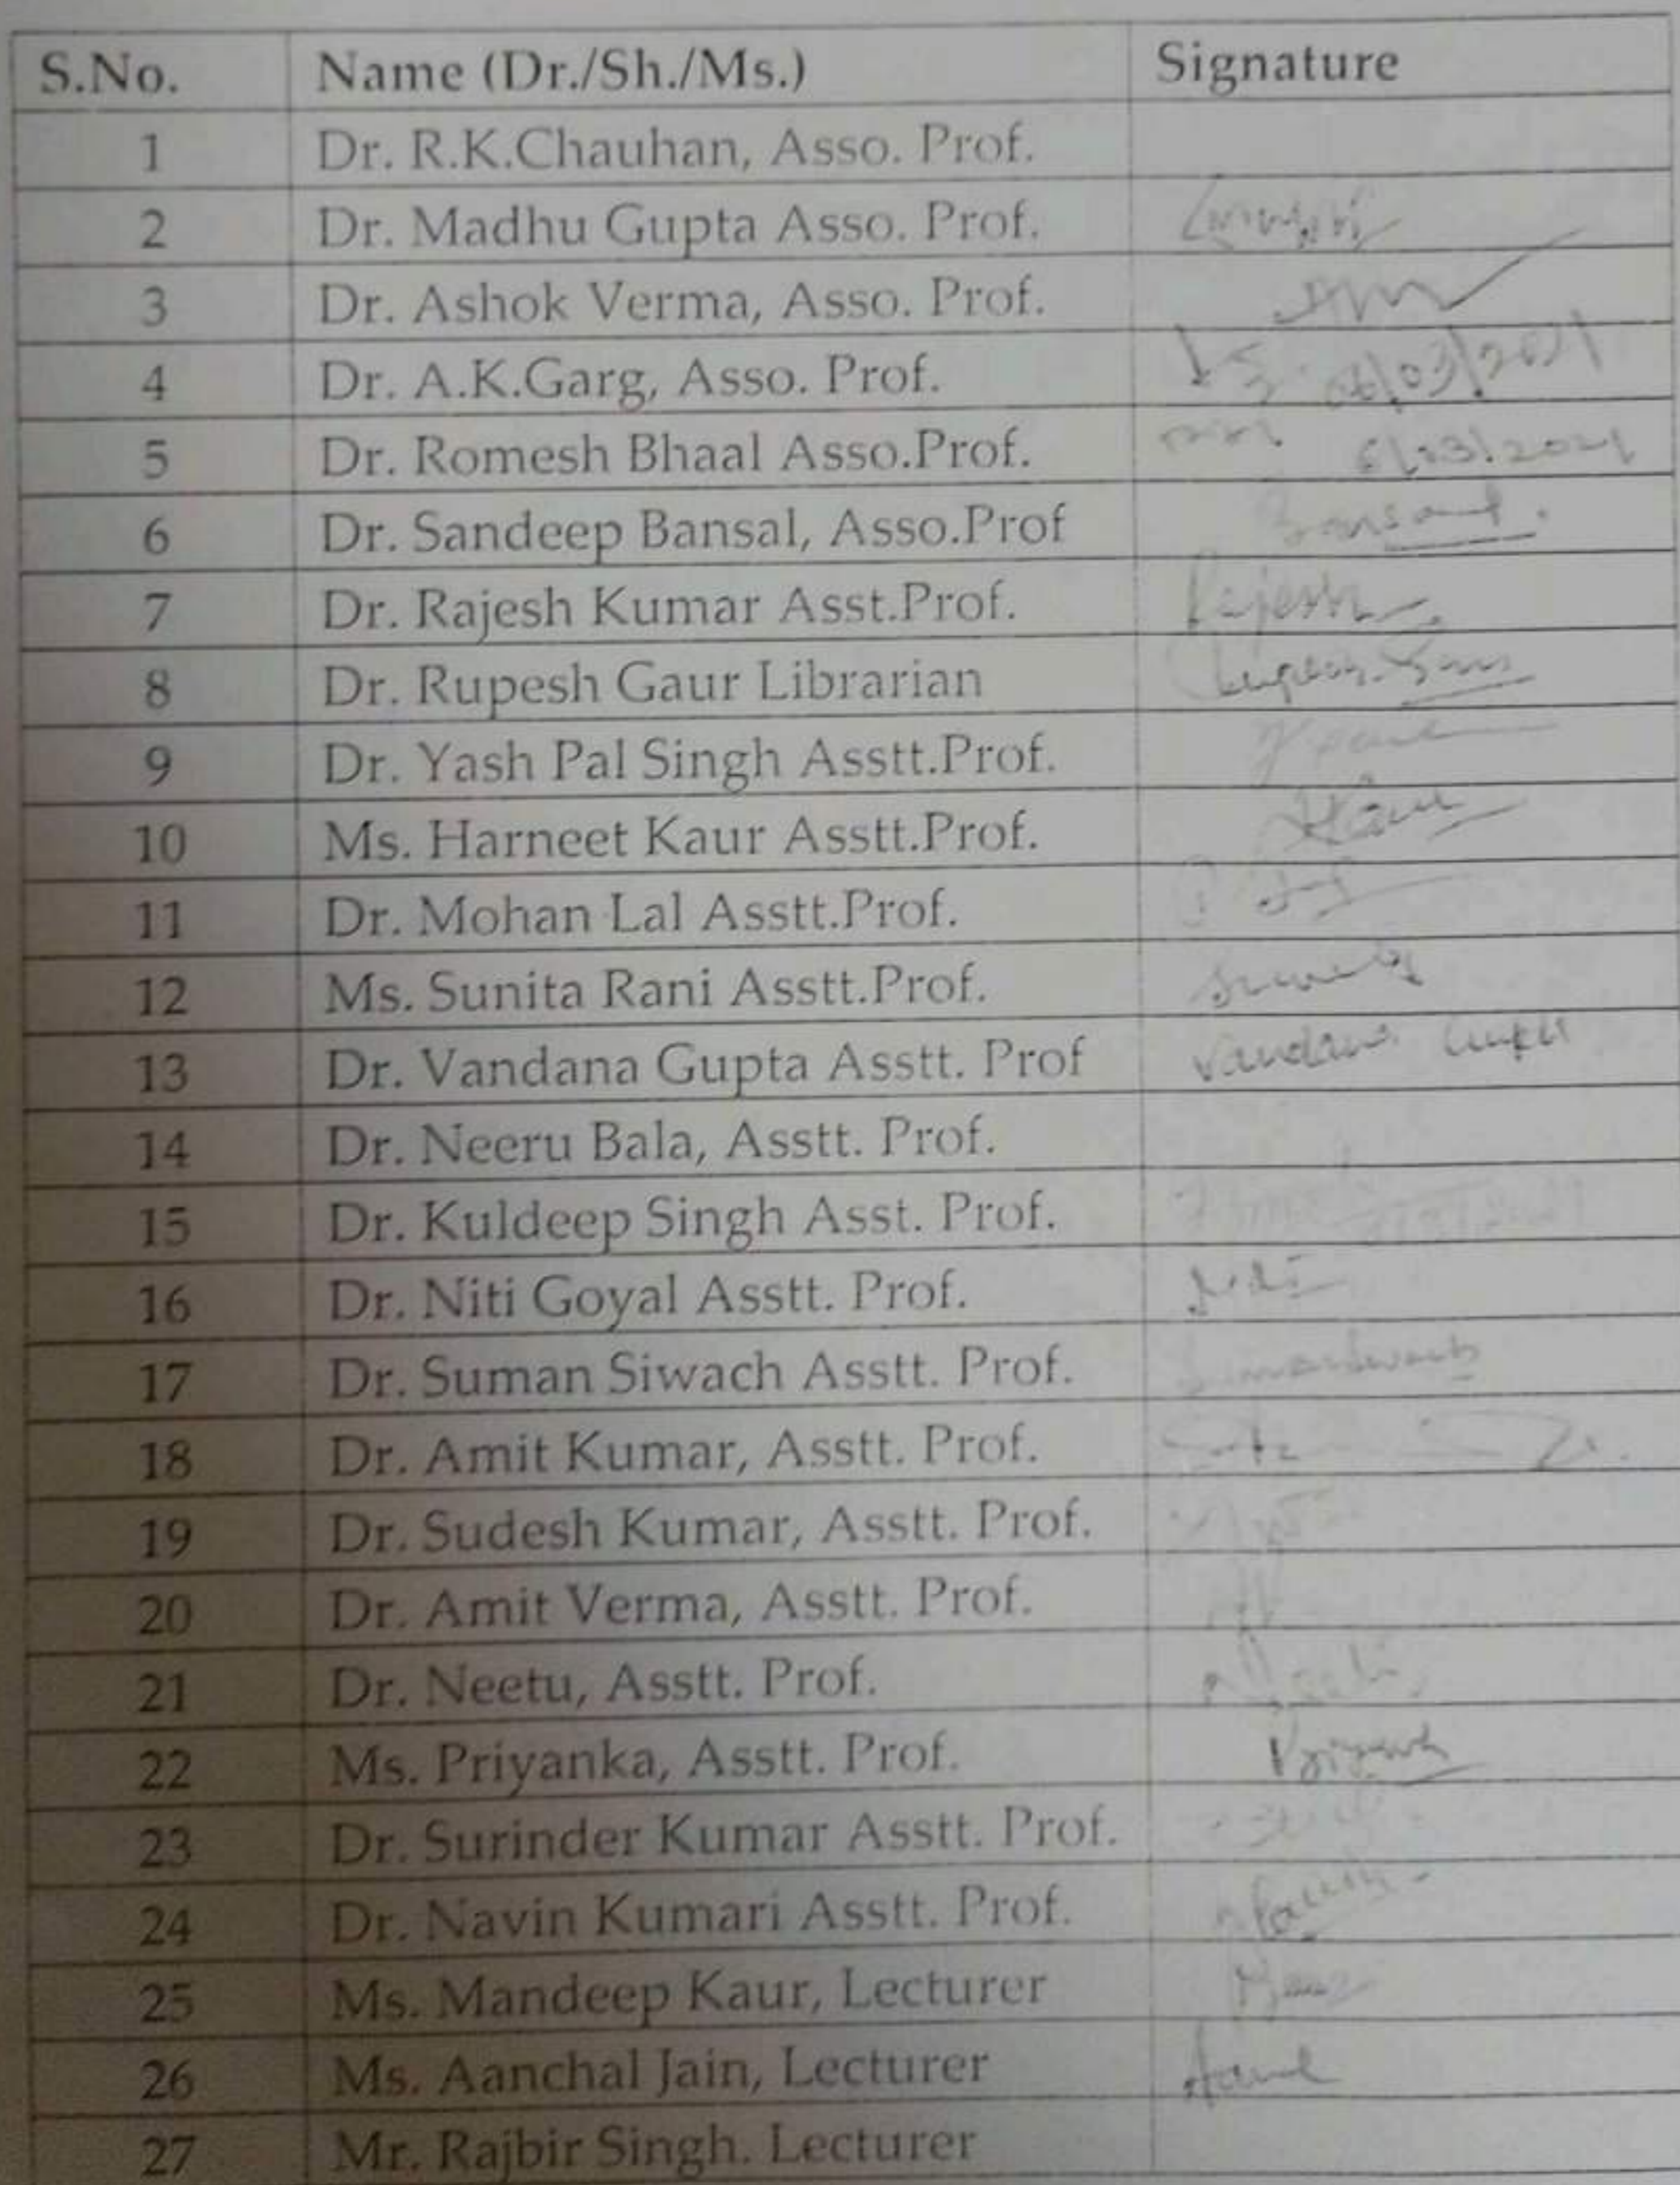 S.No. Name (Dr./Sh./Ms.) Signature
1 Dr. R.K.Chauhan, Asso. Prof.
2 Dr. Madhu Gupta Asso. Prof.
3 Dr. Ashok Verma, Asso. Prof.
4 Dr. A.K.Garg, Asso. Prof. 06/03/2021
5 Dr. Romesh Bhaal Asso.Prof. 6/03/2021
6 Dr. Sandeep Bansal, Asso.Prof Bansal.
7 Dr. Rajesh Kumar Asst.Prof. Rajesh
8 Dr. Rupesh Gaur Librarian
9 Dr. Yash Pal Singh Asstt.Prof.
10 Ms. Harneet Kaur Asstt.Prof.
11 Dr. Mohan Lal Asstt.Prof.
12 Ms. Sunita Rani Asstt.Prof.
13 Dr. Vandana Gupta Asstt. Prof Vandana Gupta
14 Dr. Neeru Bala, Asstt. Prof.
15 Dr. Kuldeep Singh Asst. Prof.
16 Dr. Niti Goyal Asstt. Prof.
17 Dr. Suman Siwach Asstt. Prof.
18 Dr. Amit Kumar, Asstt. Prof.
19 Dr. Sudesh Kumar, Asstt. Prof.
20 Dr. Amit Verma, Asstt. Prof.
21 Dr. Neetu, Asstt. Prof.
22 Ms. Priyanka, Asstt. Prof.
23 Dr. Surinder Kumar Asstt. Prof.
24 Dr. Navin Kumari Asstt. Prof.
25 Ms. Mandeep Kaur, Lecturer
26 Ms. Aanchal Jain, Lecturer
27 Mr. Rajbir Singh. Lecturer